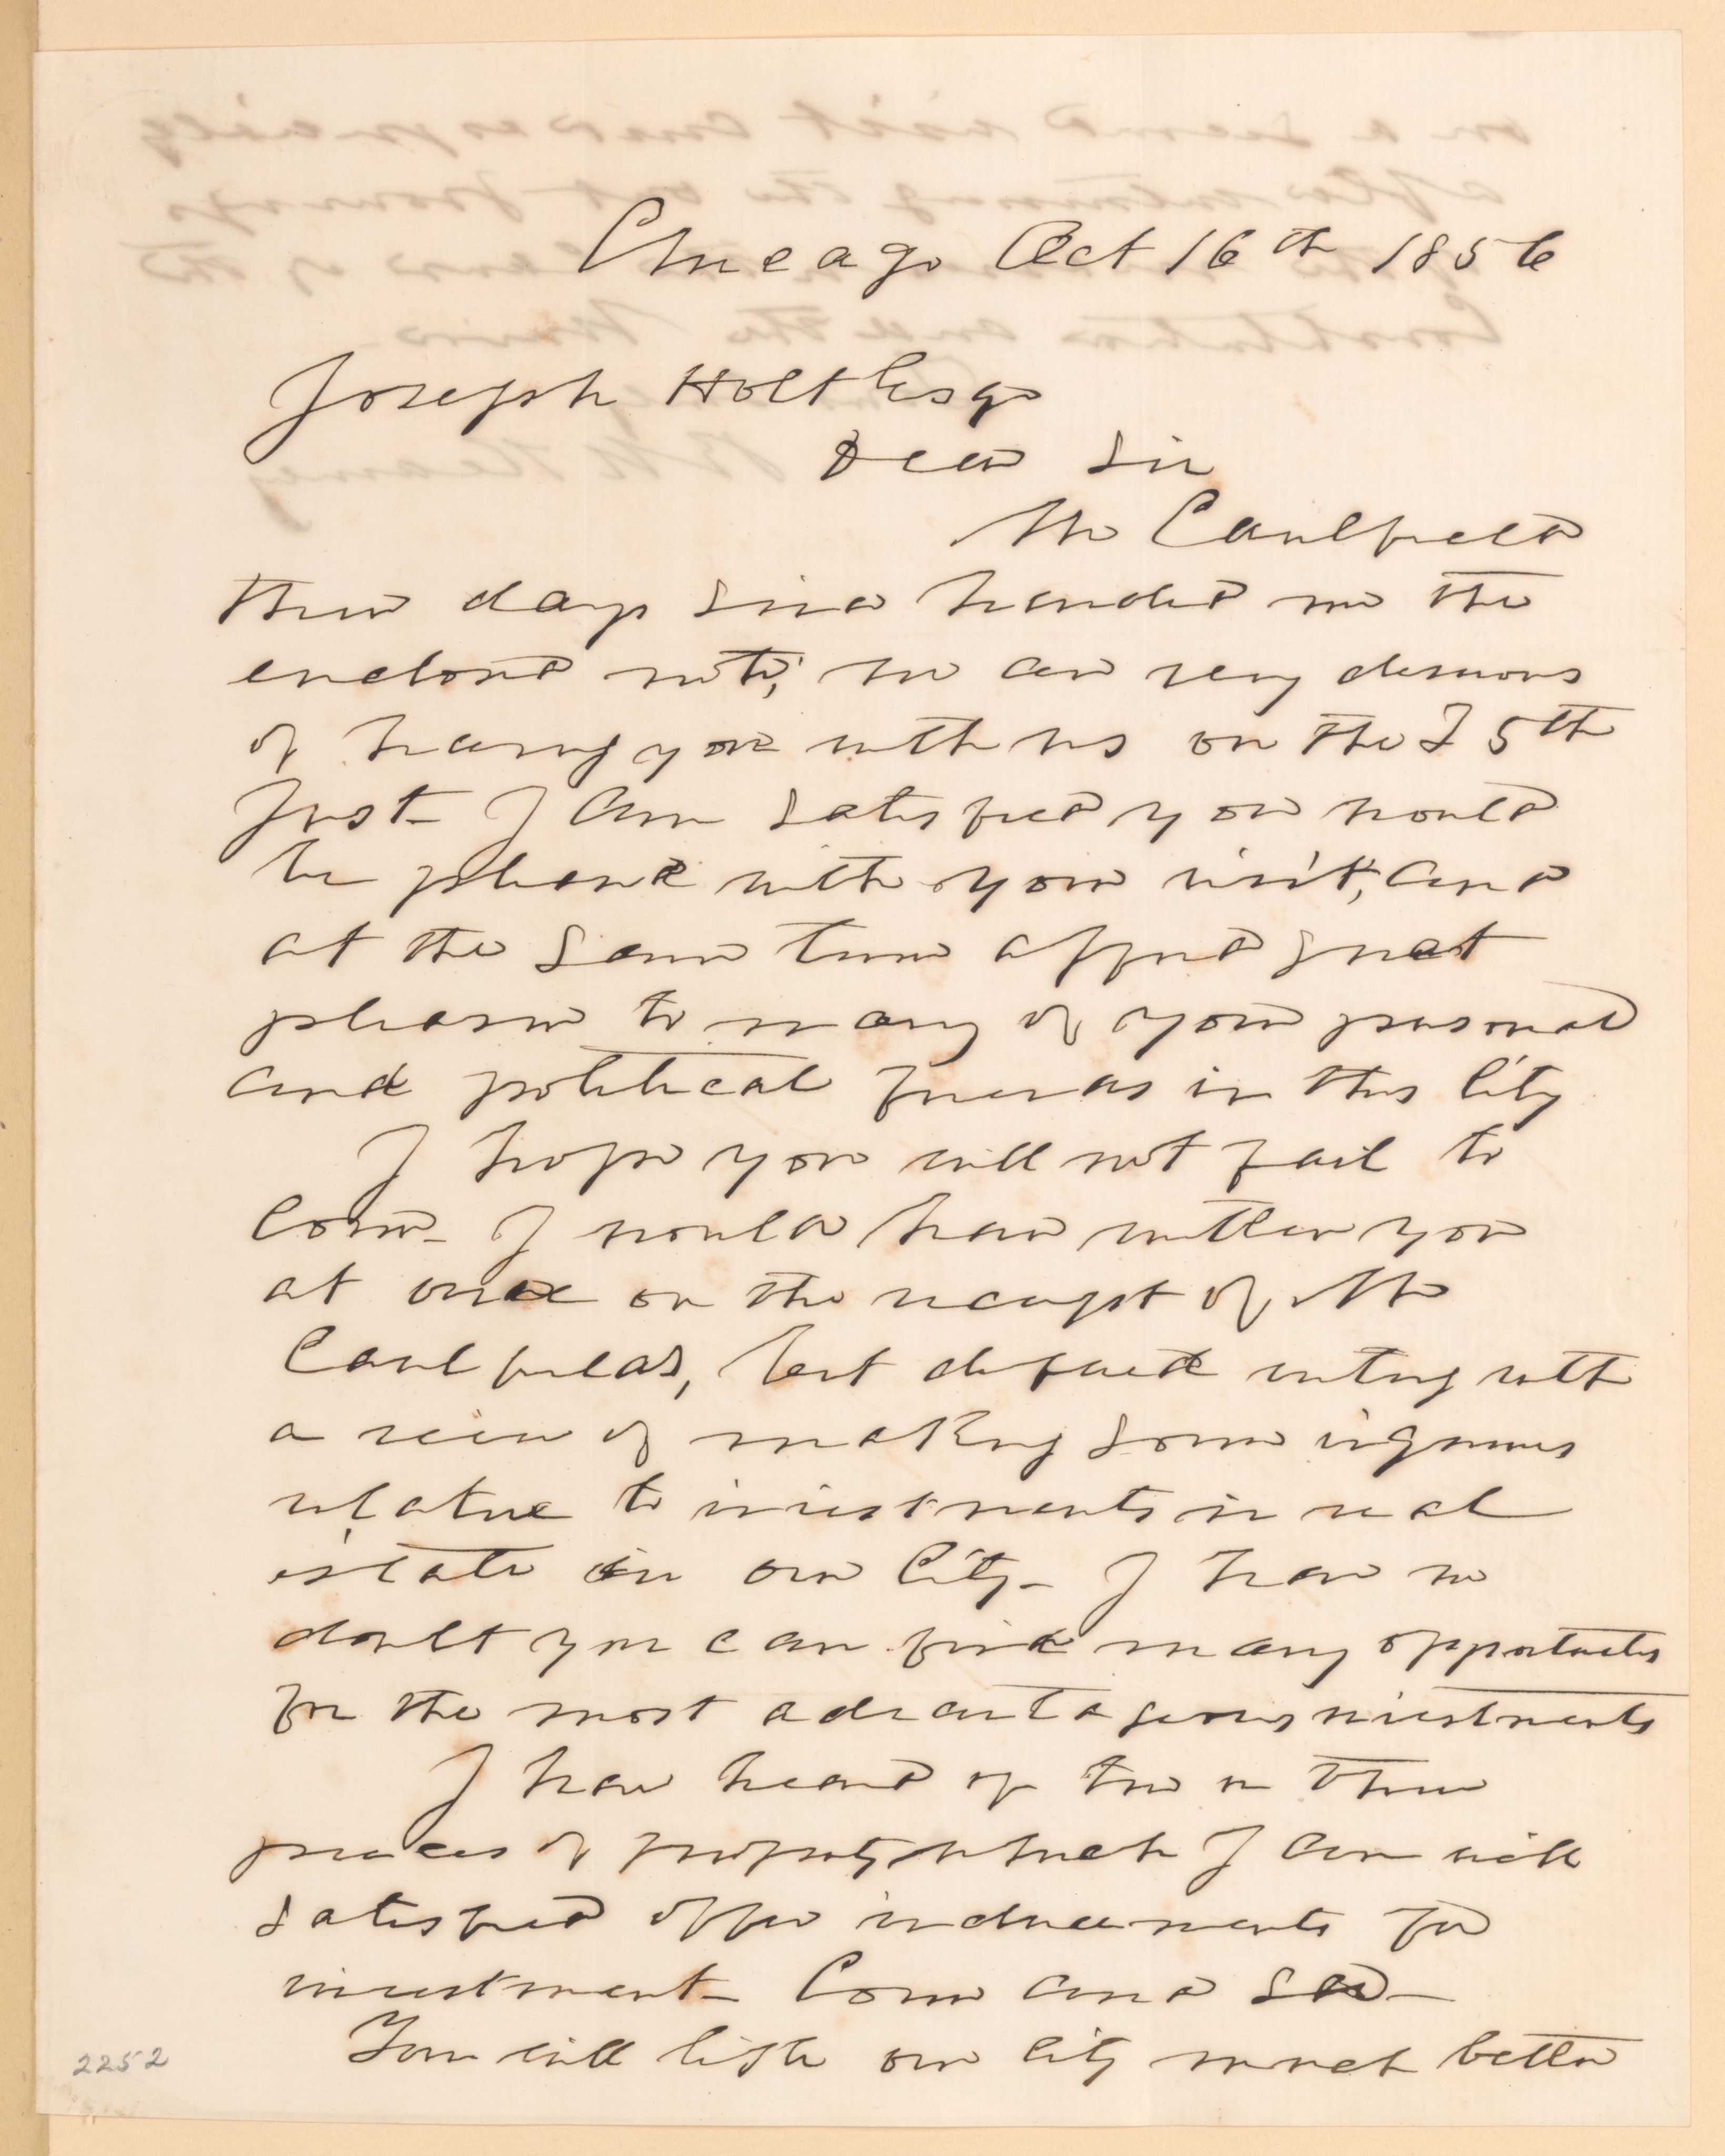 Chicago Oct 16th 1856
Joseph Holt Esqr
Dear Sir
Mr Caulfield
three days since handed me the
enclosed note; we are very desirous
of having you with us on the 25th
Inst - I am satisfied you would
be pleased with your visit, and
at the same time afford great
pleasure to many of your personal
and political friends in this City
I hope you will not fail to
Come - I would have written you
at once on the receipt of Mr
Caulfields, but defered writing with
a view of making some
relative to investments in real
estate in our City - I have no
doubt you can find many opportunities
for the most advantageous investments
I have heard of two or three
pieces of property which I am well
satisfied offer inducements for
investment - Come and see -
You will like our City much better
2252